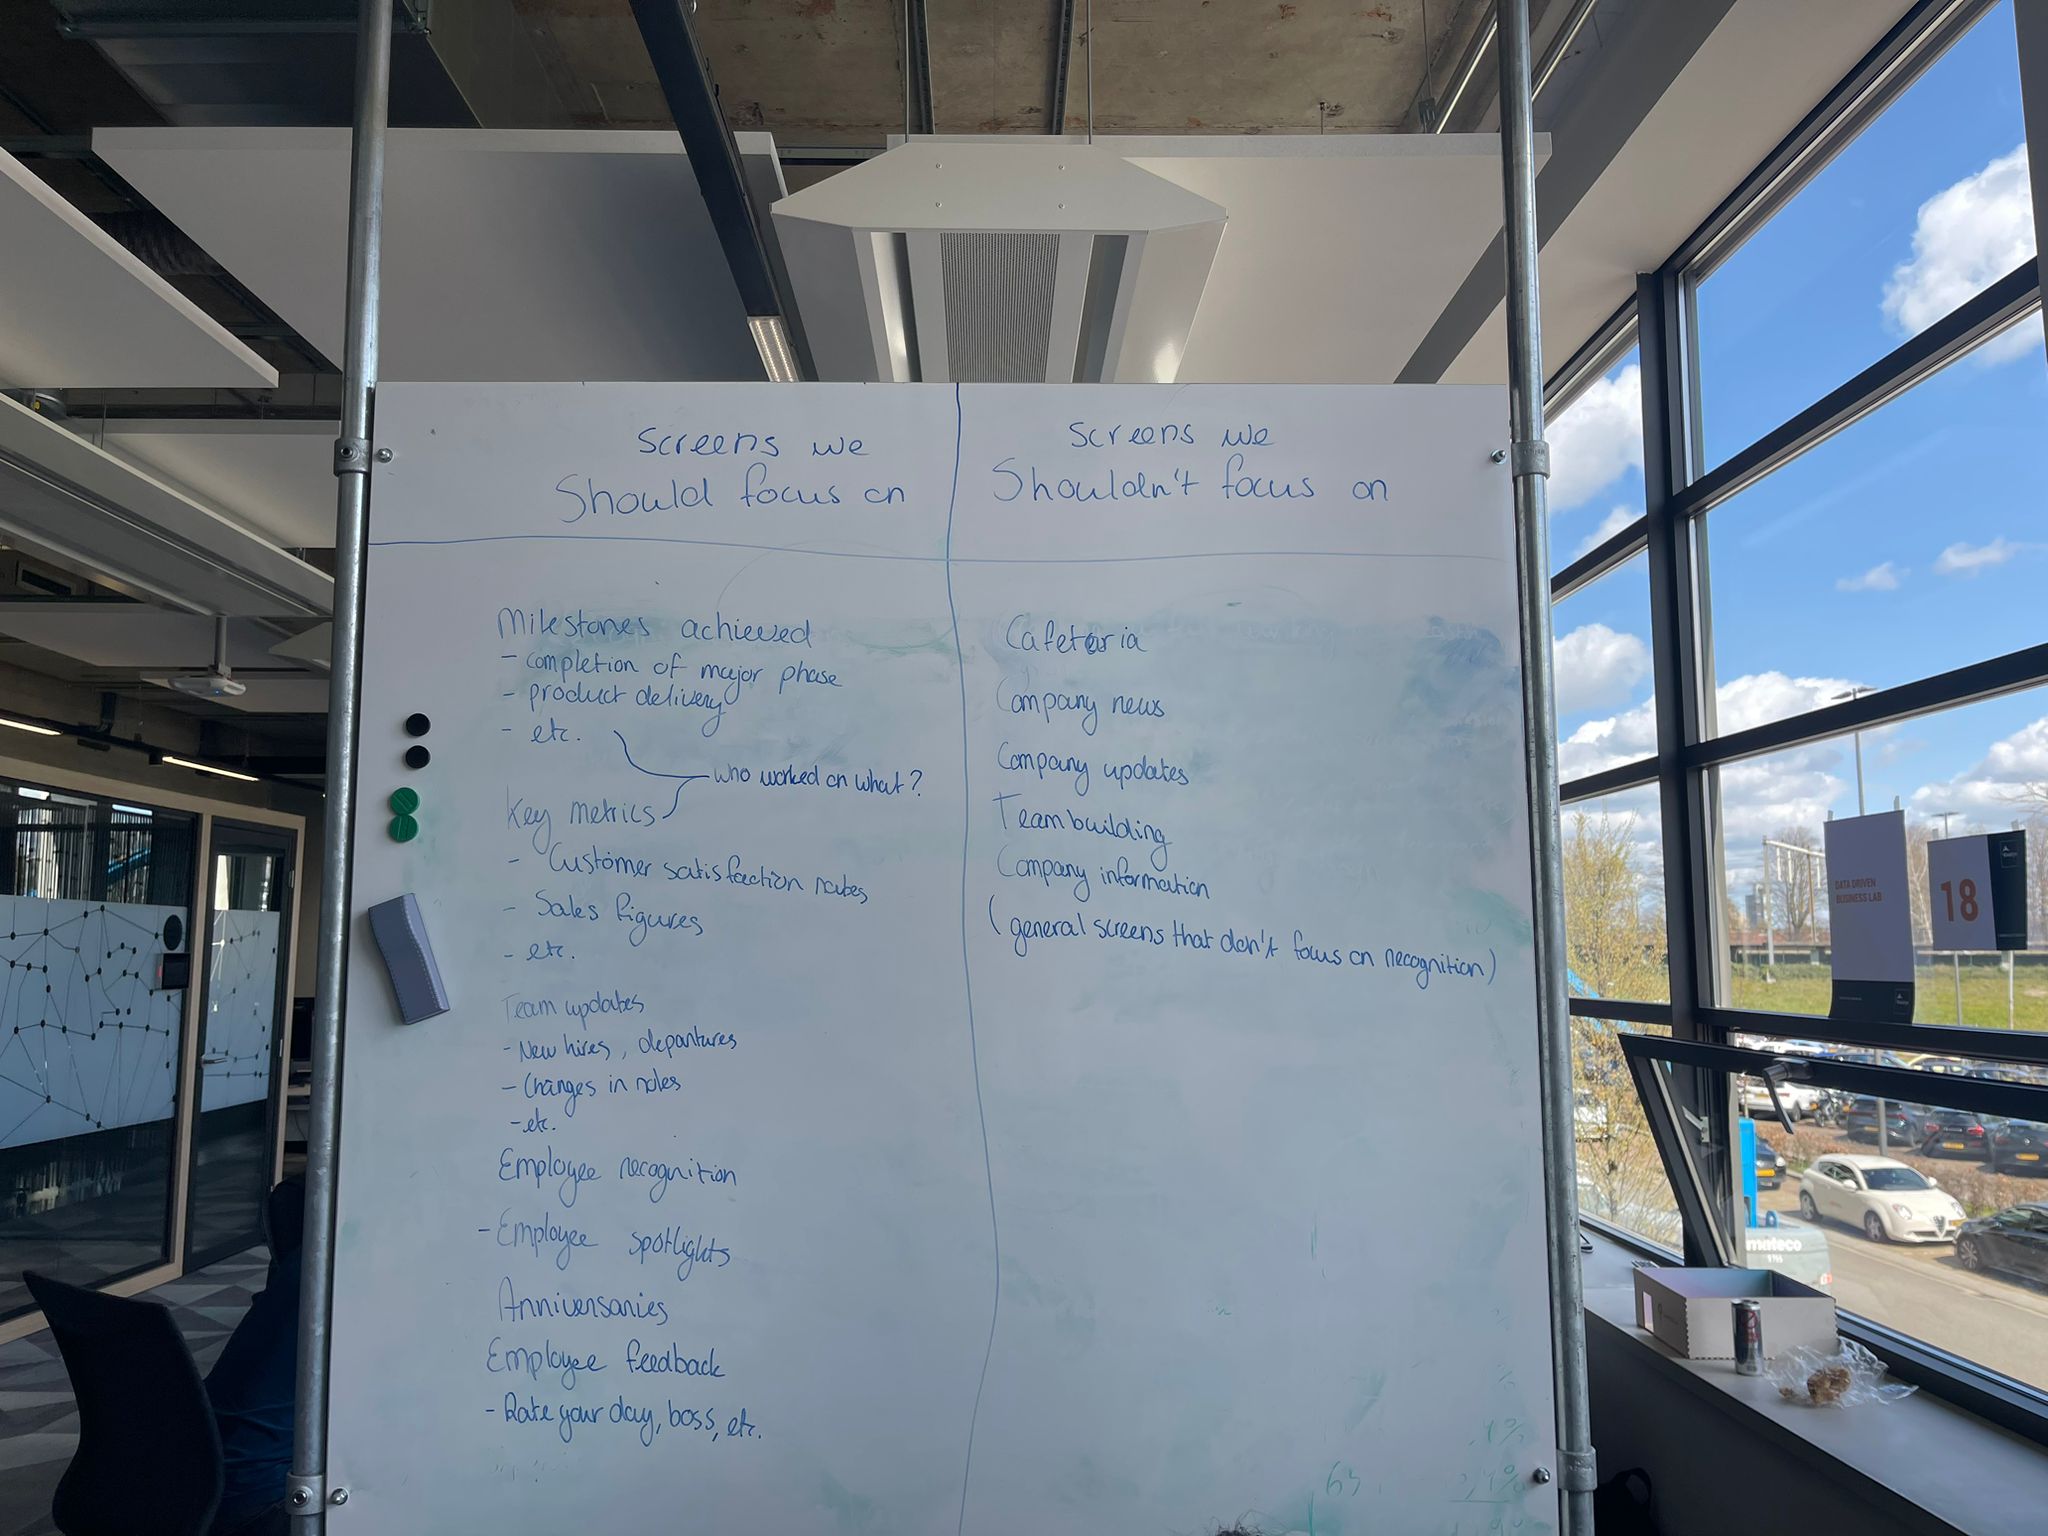 Screens we
Should focus on
Milestones achieved
- completion of major phase
- product delivery
- etc.
who worked on what?
Key metrics
- Customer satisfaction rates
- Sales figures
- etc.
Team updates
- New hires, departures
- Changes in roles
- etc.
Employee recognition
- Employee spotlights
Anniversaries
Employee feedback
- Rate your day, boss, etc.
Screens we
Shouldn't focus on
Cafeteria
Company news
Company updates
Teambuilding
Company information
(general screens that don't focus on recognition)
DATA DRIVEN
BUSINESS LAB
18
mateco